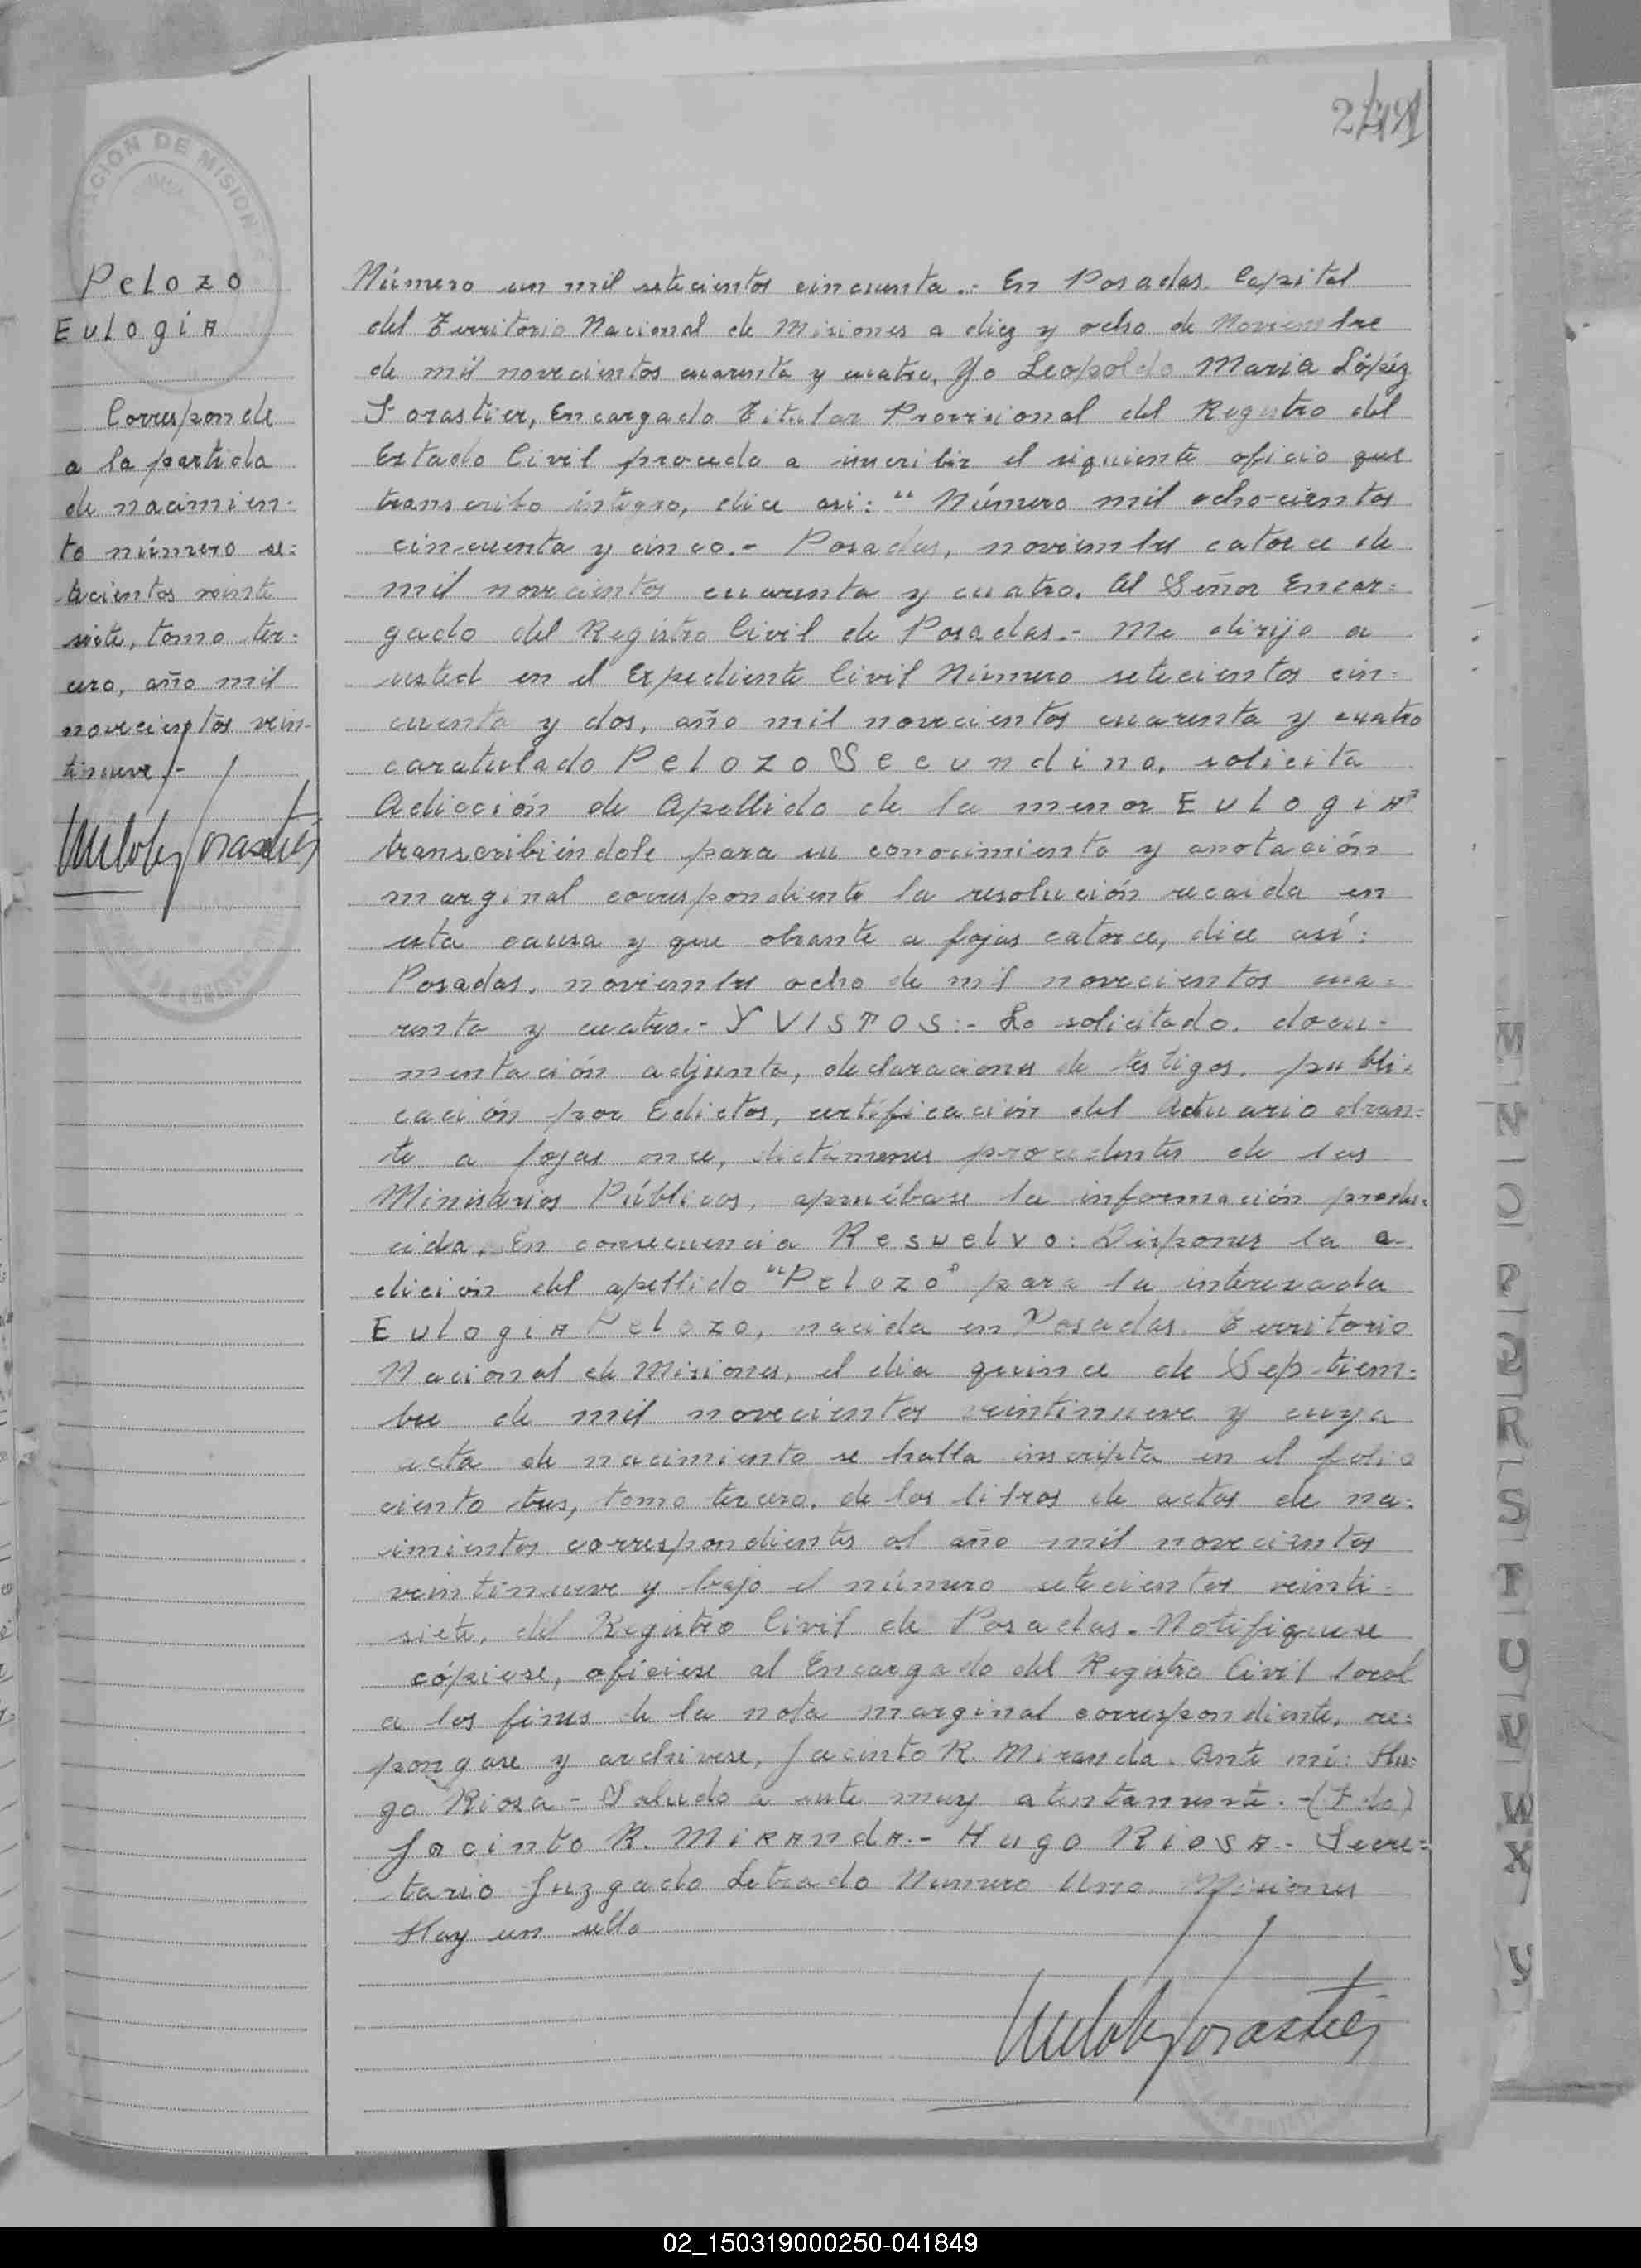 Pelozo
Eulogia
Corresponde
a la partida
de nacimien=
to número se=
tecientos veinti
siete, tomo ter=
cero, año mil
novecientos vein-
tinueve.-
Número un mil setecientos cincuenta.- En Posadas. Capital
del Territorio Nacional de Misiones a diez y ocho de Noviembre
de mil novecientos cuarenta y cuatro, Yo Leopoldo Maria López
Forastier, Encargado Titular Provisional del Registro del
Estado Civil procedo a inscribir el siguiente oficio que
transcribo íntegro, dice asi: "Número mil ocho-cientos
cincuenta y cinco.- Posadas, noviembre catorce de
mil novecientos cuarenta y cuatro. Al Señor Encar=
gado del Registro Civil de Posadas.- Me dirijo a
usted en el Expediente Civil Número setecientos cin=
cuenta y dos, año mil novecientos cuarenta y cuatro
caratulado Pelozo Secundino, solicita
Adicción de Apellido de la menor Eulogia"
transcribiéndole para su conocimiento y anotación
marginal correspondiente la resolución recaida en
esta causa y que obrante a fojas catorce, dice así:
Posadas, noviembre ocho de mil novecientos cua=
renta y cuatro.- Y VISTOS:- Lo solicitado, docu-
mentación adjunta, declaraciones de testigos, publi=
cación por Edictos, certificación del Actuario obran=
te a fojas once, dictámenes procedentes de los
Ministerios Públicos, apruébase la información produ=
cida. En consecuencia Resuelvo: Disponer la a-
dición del apellido "Pelozo" para la interezada
Eulogia Pelozo, nacida en Posadas. Territorio
Nacional de Misiones, el dia quince de Septiem=
bre de mil novecientos veintinueve y cuya
acta de nacimiento se halla inscripta en el folio
ciento tres, tomo tercero, de los libros de actas de na=
cimientos correspondientes al año mil novecientos
veintinueve y bajo el número setecientos veinti=
siete, del Registro Civil de Posadas. Notifiquese
cópiese, ofíciese al Encargado del Registro Civil local
a los fines de la nota marginal correspondiente, re=
pongase y archívese, Jacinto R. Miranda. Ante mí: Hu=
go Riosa - Saludo a uste muy atentamente.-(Fdo)
Jacinto R. Miranda.- Hugo Riosa.- Secre=
tario Juzgado Letrado Numero Uno. Misiones
Hay un sello
M
N
O
P
Q
R
S
T
U
V
W
X
Y
02_150319000250-041849